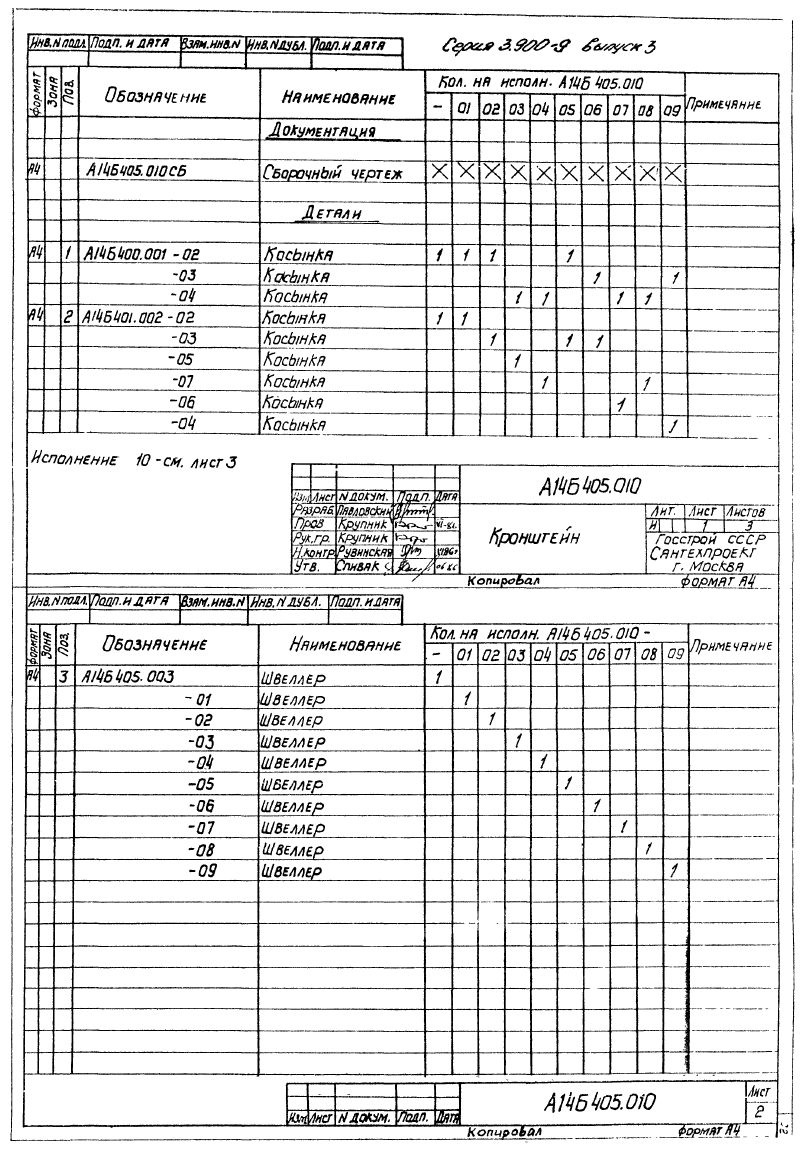 Серия 3.900-9 выпуск 3
Инв.N подл. Подп. и дата Взам.инв.N Инв.N дубл. Подп. и дата
Формат Зона Поз. Обозначение Наименование Кол. на исполн. А14Б 405.010 Примечание
- 01 02 03 04 05 06 07 08 09
Документация
А4 А14Б405.010СБ Сборочный чертеж X X X X X X X X X X
Детали
А4 1 А14Б400.001-02 Косынка 1 1 1 1
-03 Косынка 1 1
-04 Косынка 1 1 1 1
А4 2 А14Б401.002-02 Косынка 1 1
-03 Косынка 1 1 1
-05 Косынка 1
-07 Косынка 1 1
-06 Косынка 1
-04 Косынка 1
Исполнение 10-см. лист 3
А14Б405.010
Изм Лист N докум. Подп. Дата
Разраб. Павловский
Пров Крупник
Рук.гр. Крупник
Н.контр Рувинская
Утв. Спивак
Кронштейн
Лит. Лист Листов
И 1 3
Госстрой СССР
Сантехпроект
г. Москва
Копировал Формат А4
Инв.N подл. Подп. и дата Взам.инв.N Инв.N дубл. Подп. и дата
Формат Зона Поз. Обозначение Наименование Кол. на исполн. А14Б405.010- Примечание
- 01 02 03 04 05 06 07 08 09
А4 3 А14Б405.003 Швеллер 1
-01 Швеллер 1
-02 Швеллер 1
-03 Швеллер 1
-04 Швеллер 1
-05 Швеллер 1
-06 Швеллер 1
-07 Швеллер 1
-08 Швеллер 1
-09 Швеллер 1
А14Б405.010
Лист
2
Изм Лист N докум. Подп. Дата
Копировал Формат А4